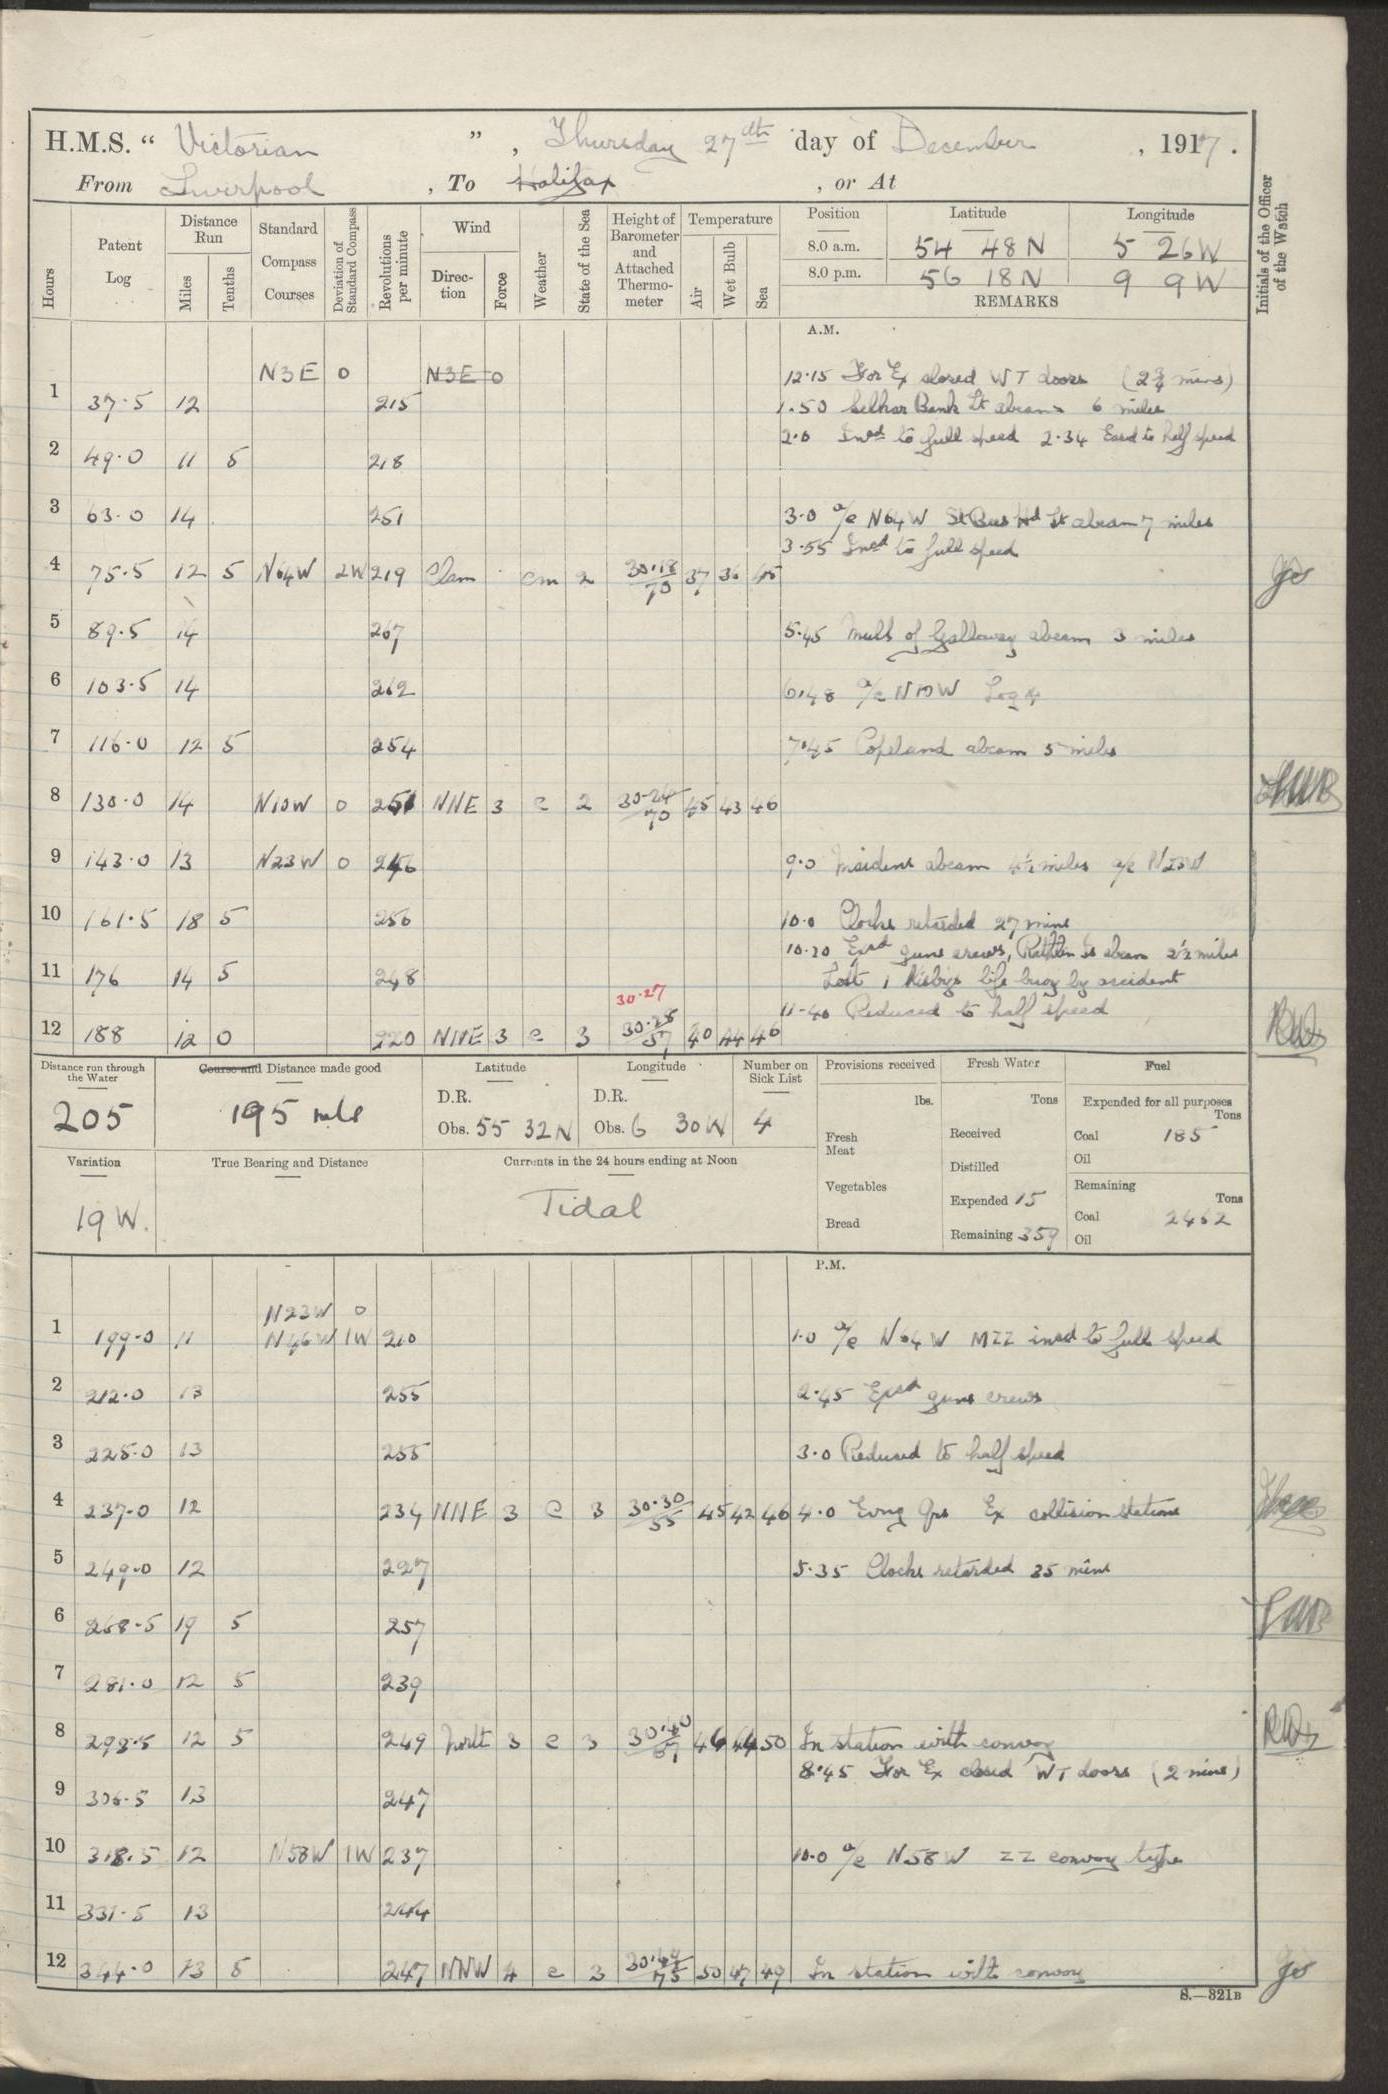 H.M.S. “ Victorian ”, Thursday 27th day of December, 1917.
From Liverpool, To Halifax, or At
Hours
Patent Log
Distance Run
Miles
Tenths
Standard Compass Courses
Deviation of Standard Compass
Revolutions per minute
Wind
Direction
Force
Weather
State of the Sea
Height of Barometer and Attached Thermometer
Temperature
Air
Wet Bulb
Sea
Position Latitude Longitude
8.0 a.m. 54 48 N 5 26 W
8.0 p.m. 56 18 N 9 9 W
REMARKS
Initials of the Officer of the Watch
A.M.
N3E 0 N3E 0
12.15 For Ex closed WT doors (2¾ mins)
1 37.5 12 215
1.50 Selker Bank Lt abeam 6 miles
2.0 Incd to full speed 2.34 Easd to half speed
2 49.0 11 5 218
3 63.0 14 251 3.0 a/c N64W St Bees Hd Lt abeam 7 miles
3.55 Incd to full speed
4 75.5 12 5 N64W 2W 219 Clam cm 2 30.18 70 37 36 45
5 89.5 14 267 5.45 Mull of Galloway abeam 3 miles
6 103.5 14 262 6.48 a/c N10W Log
7 116.0 12 5 254 7.45 Copeland abeam 5 miles
8 130.0 14 N10W 0 251 NNE 3 c 2 30.24 70 45 43 46
9 143.0 13 N23W 0 246 9.0 Maidens abeam 4½ miles a/c N23W
10 161.5 18 5 256 10.0 Clocks retarded 27 mins
10.20 Exsd guns crews, Rathlin Is abeam 2½ miles
11 176 14 5 248 Lost 1 Kisbys life buoy by accident
30.27
11.40 Reduced to half speed
12 188 12 0 220 NNE 3 c 3 30.28 57 40 44 46
Distance run through the Water
205
Course and Distance made good
195 mls
Latitude
D.R.
Obs. 55 32 N
Longitude
D.R.
Obs. 6 30 W
Number on Sick List
4
Provisions received
lbs.
Fresh Meat
Vegetables
Bread
Fresh Water
Tons
Received
Distilled
Expended 15
Remaining 359
Fuel
Expended for all purposes
Tons
Coal 185
Oil
Remaining
Tons
Coal 2462
Oil
Variation
19 W.
True Bearing and Distance
Currents in the 24 hours ending at Noon
Tidal
P.M.
N23W 0
1 199.0 11 N46W 1W 210 1.0 a/c N64W MZZ incd to full speed
2 212.0 13 255 2.45 Exsd guns crews
3 225.0 13 255 3.0 Reduced to half speed
4 237.0 12 234 NNE 3 c 3 30.30 55 45 42 46 4.0 Evng Qrs Ex collision stations
5 249.0 12 227 5.35 Clocks retarded 35 mins
6 268.5 19 5 257
7 281.0 12 5 239
8 293.5 12 5 249 North 3 c 3 30.40 67 46 44 50 In station with convoy
8.45 For Ex closed WT doors (2 mins)
9 306.5 13 247
10 318.5 12 N58W 1W 237 10.0 a/c N58W ZZ convoy type
11 331.5 13 244
12 344.0 13 5 247 NNW 4 c 3 75 50 47 49 In station with convoy
S.—321B